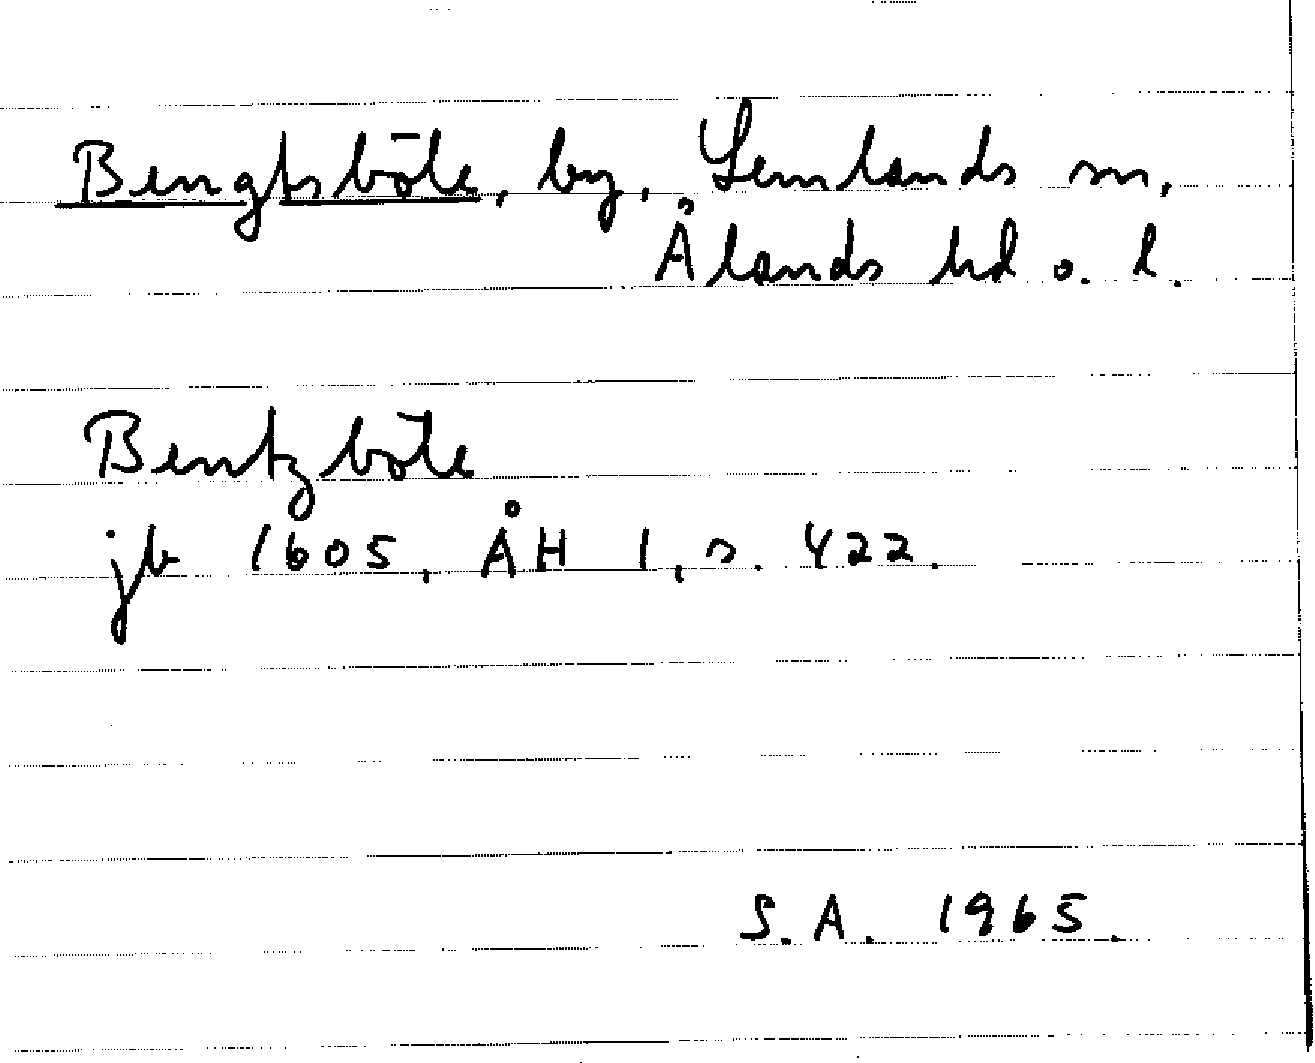 Bengtsböle, by, Lemlands sn,
Ålands hd o. l.
Bentzböle
jb 1605, ÅH 1, s. 422.
S.A. 1965.